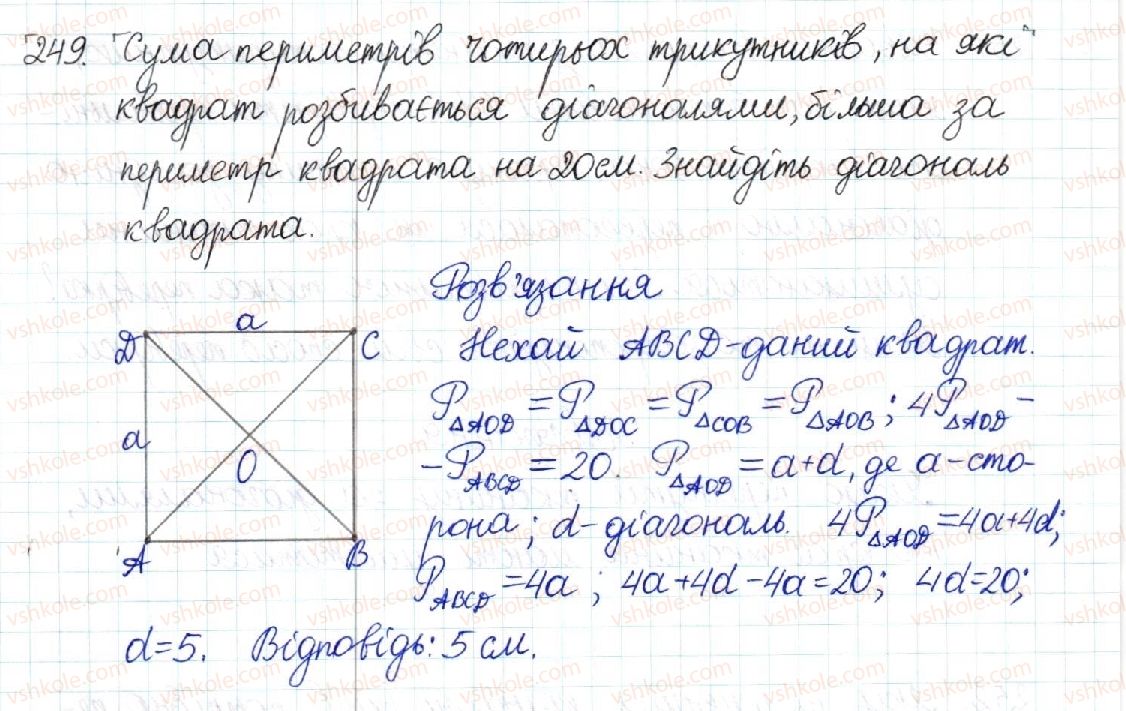 249. "Сума периметрів чотирьох трикутників, на які
квадрат розбивається діагоналями, більша за
периметр квадрата на 20 см. Знайдіть діагональ
квадрата.
Розв'язання
Нехай ABCD - даний квадрат.
P△AOD = P△DOC = P△COB = P△AOB; 4P△AOD -
- PABCD = 20. P△AOD = a+d, де a - сто-
рона; d - діагональ. 4P△AOD = 4a+4d;
PABCD = 4a; 4a+4d-4a=20; 4d=20;
d=5. Відповідь: 5 см.
D a C
a O
A B